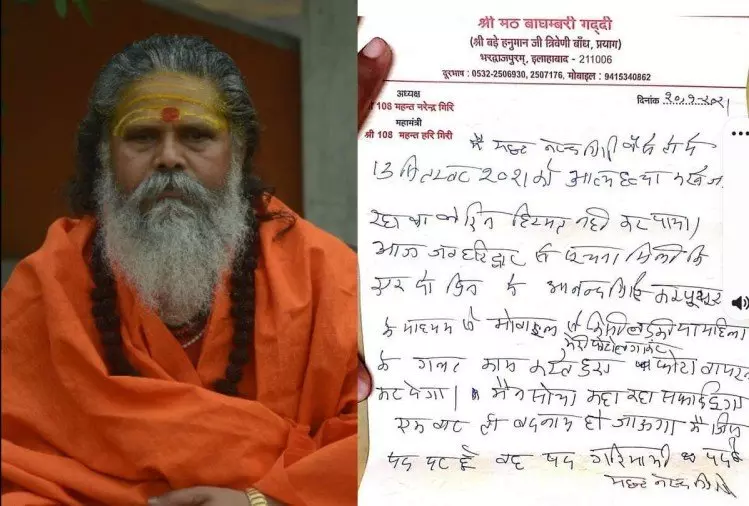 श्री मठ बाघम्बरी गद्दी
(श्री बड़े हनुमान जी त्रिवेणी बाँध, प्रयाग)
भरद्वाजपुरम्, इलाहाबाद - 211006
दूरभाष : 0532-2506930, 2507176, मोबाइल : 9415340862
अध्यक्ष
श्री 108 महन्त नरेन्द्र गिरि
महामंत्री
श्री 108 महन्त हरि गिरी
दिनांक
मै महन्त नरेन्द्र गिरि वैसे तो मै
13 सितम्बर 2021 को आत्महत्या करने जा
रहा था लेकिन हिम्मत नही कर पाया।
आज जब हरिद्वार से सूचना मिली कि
एक दो दिन के आनन्द गिरि कम्प्यूटर
के माध्यम से मोबाइल से किसी लड़की या महिला
मेरी फोटो लगाकर
के गलत काम करते हुए फोटो वायरल
कर देगा। मैने सोचा कहा तक सफाई दूगा
एक बार तो बदनाम हो जाऊगा मै जिस
पद पर हूँ वह पद गरिमामयी पद है
महन्त नरेन्द्र गिरि